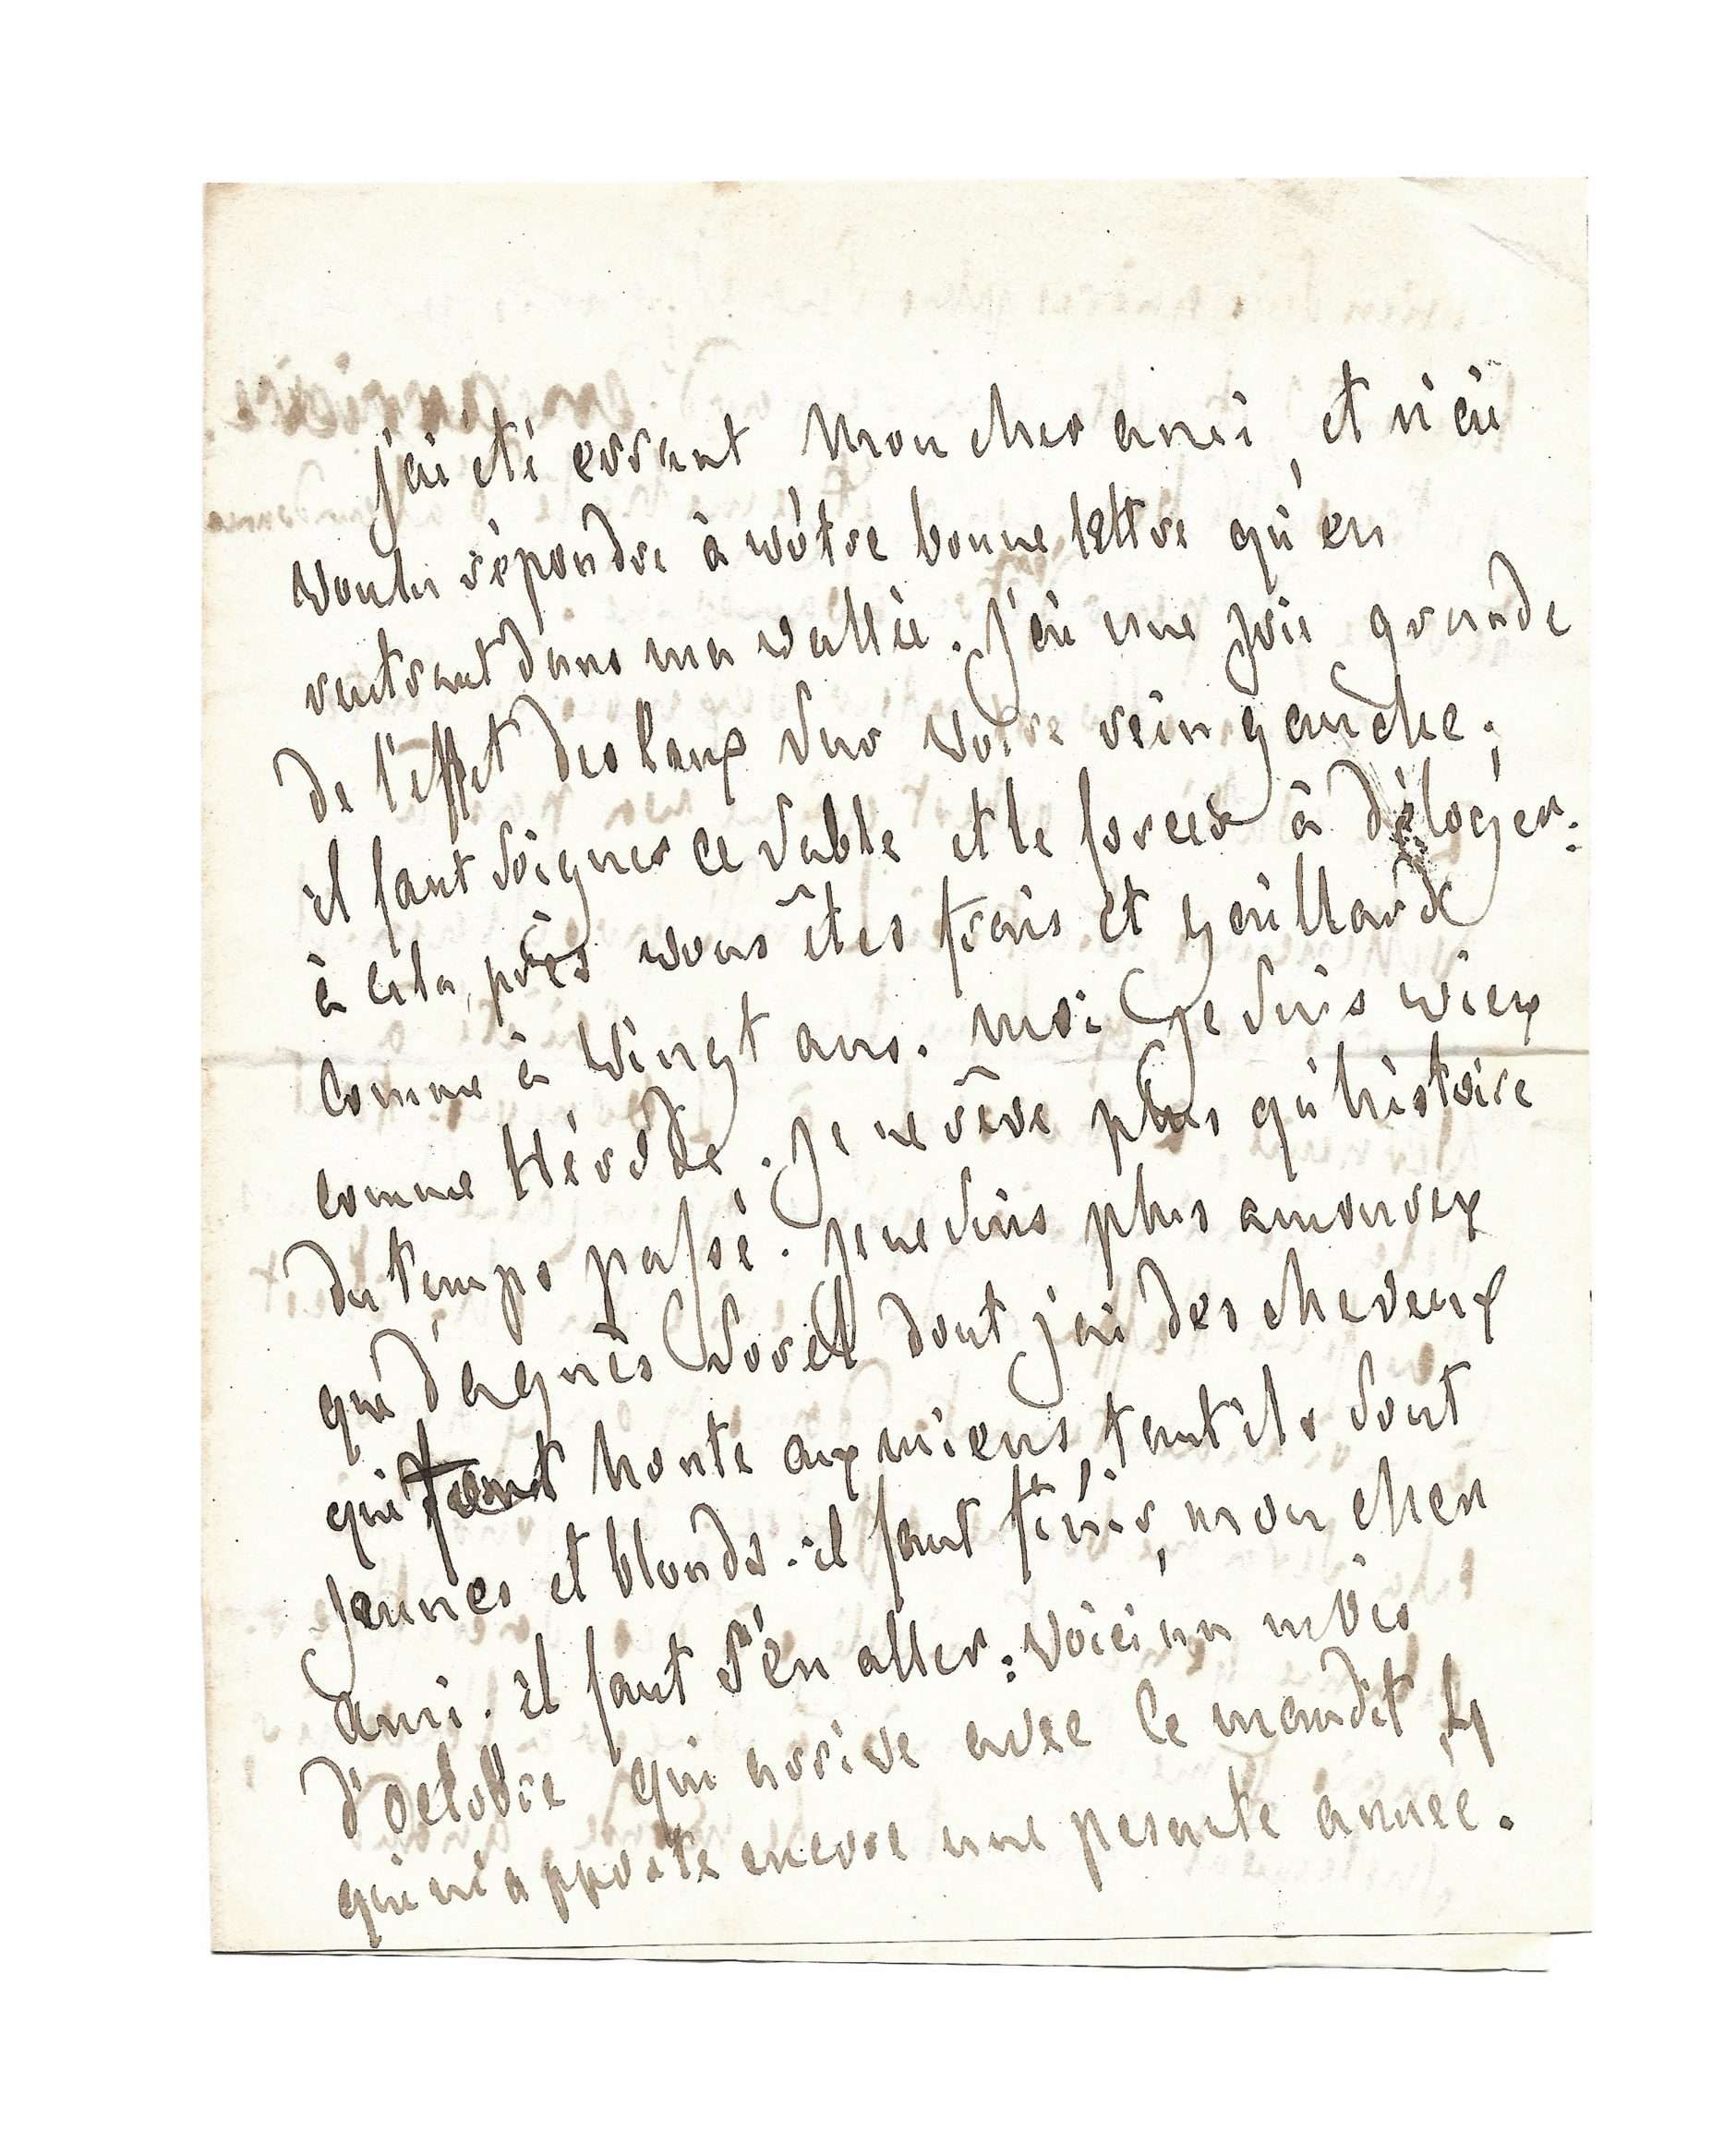 j'ai été errant mon cher ami, et n'ai
voulu répondre à vôtre bonne lettre qu'en
rentrant dans ma vallée. J'ai une joie grande
de l'effet des Eaux sur votre rein gauche;
il faut soigner ce sable et le forcer à déloger:
à cela près vous êtes frais et gaillard
comme à vingt ans. moi je suis vieux
comme Hérode. Je ne rêve plus qu'histoire
du temps passé. Je ne suis plus amoureux
que d'agnès Sorel dont j'ai des cheveux
qui font honte aux miens tant ils sont
jeunes et blonds. il faut finir, mon cher
ami. il faut s'en aller: voici un mois
d'octobre qui arrive avec le maudit 4
qui m'apporte encore une pesante année.